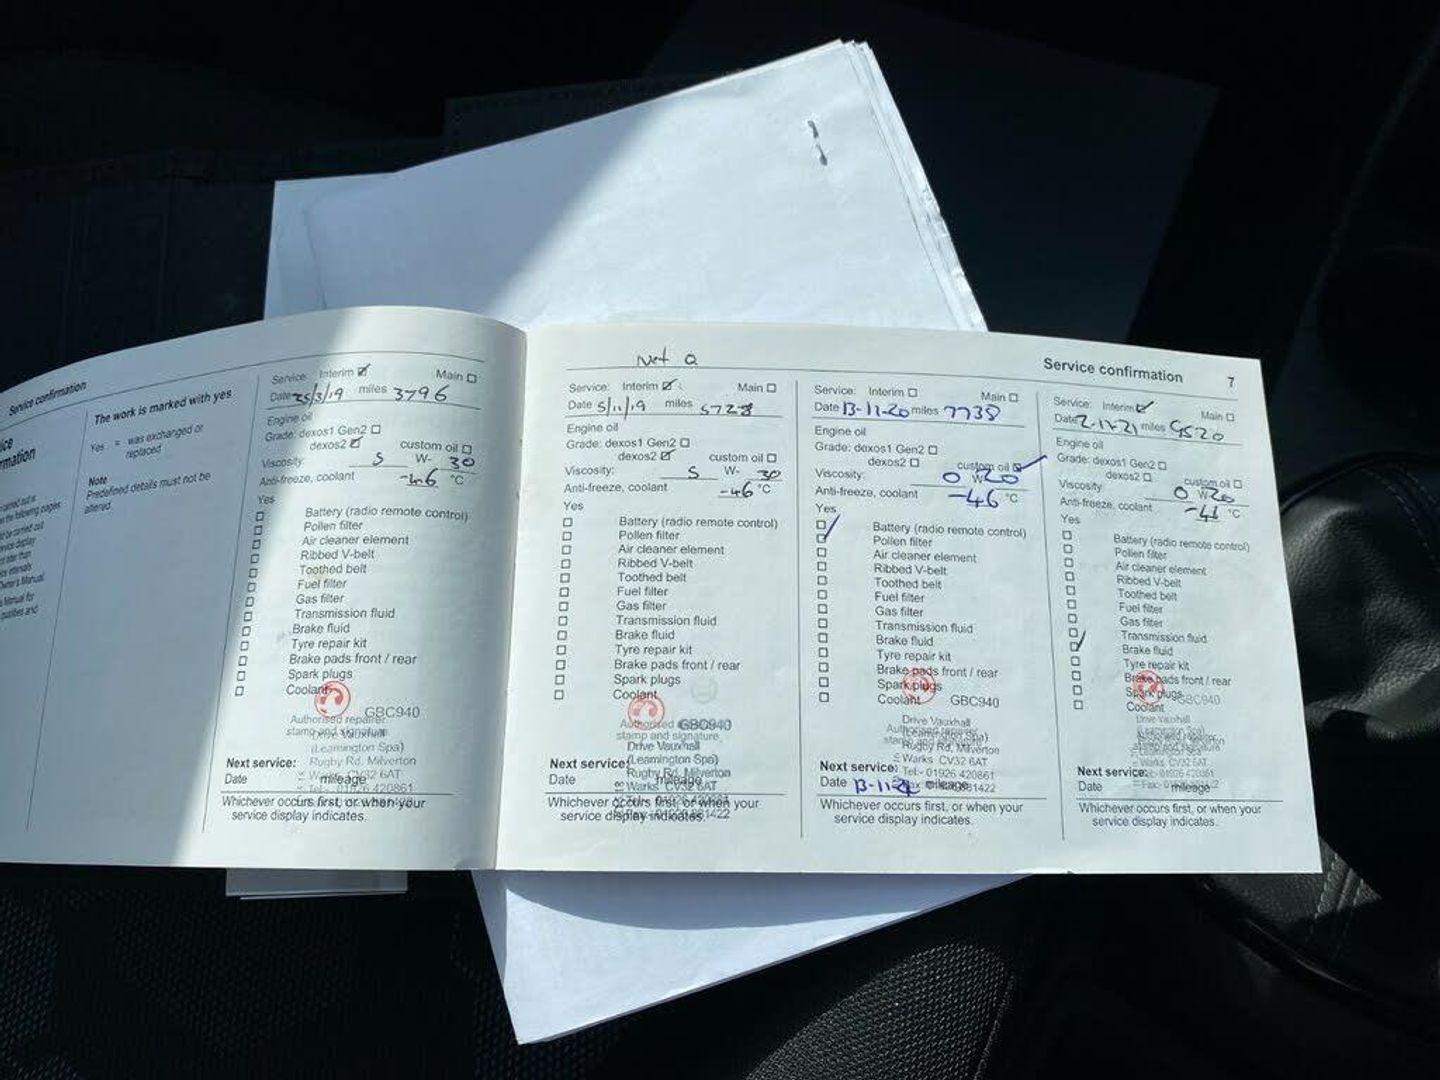 Service confirmation
The work is marked with yes
Yes = was exchanged or
replaced
Note
Predefined details must not be
altered.
Service: Interim Main
Date 25/3/19 miles 3796
Engine oil
Grade: dexos1 Gen2
dexos2 custom oil
Viscosity: 5 W- 30
Anti-freeze, coolant -46 °C
Yes
Battery (radio remote control)
Pollen filter
Air cleaner element
Ribbed V-belt
Toothed belt
Fuel filter
Gas filter
Transmission fluid
Brake fluid
Tyre repair kit
Brake pads front / rear
Spark plugs
Coolant
GBC940
Authorised repairer
stamp and signature
Drive Vauxhall
(Leamington Spa)
Rugby Rd. Milverton
Warks CV32 6AT
Tel:- 01926 420861
Next service:
Date mileage
Whichever occurs first, or when your
service display indicates.
Not a
Service confirmation 7
Service: Interim Main
Date 5/11/19 miles 5728
Engine oil
Grade: dexos1 Gen2
dexos2 custom oil
Viscosity: 5 W- 30
Anti-freeze, coolant -46 °C
Yes
Battery (radio remote control)
Pollen filter
Air cleaner element
Ribbed V-belt
Toothed belt
Fuel filter
Gas filter
Transmission fluid
Brake fluid
Tyre repair kit
Brake pads front / rear
Spark plugs
Coolant
Authorised GBC940
stamp and signature
Drive Vauxhall
(Leamington Spa)
Rugby Rd. Milverton
Warks CV32 6AT
Next service:
Date mileage
Whichever occurs first, or when your
service display indicates.
Service: Interim Main
Date 13-11-20 miles 7738
Engine oil
Grade: dexos1 Gen2
dexos2 custom oil
Viscosity: 0 W 20
Anti-freeze, coolant -46 °C
Yes
Battery (radio remote control)
Pollen filter
Air cleaner element
Ribbed V-belt
Toothed belt
Fuel filter
Gas filter
Transmission fluid
Brake fluid
Tyre repair kit
Brake pads front / rear
Spark plugs
Coolant GBC940
Drive Vauxhall
(Leamington Spa)
Rugby Rd. Milverton
Warks CV32 6AT
Tel:- 01926 420861
Next service:
Date 13-11-21 mileage
Whichever occurs first, or when your
service display indicates.
Service: Interim Main
Date 2-11-21 miles 9520
Engine oil
Grade: dexos1 Gen2
dexos2 custom oil
Viscosity: 0 W 20
Anti-freeze, coolant °C
Yes
Battery (radio remote control)
Pollen filter
Air cleaner element
Ribbed V-belt
Toothed belt
Fuel filter
Gas filter
Transmission fluid
Brake fluid
Tyre repair kit
Brake pads front / rear
Spark plugs GBC940
Coolant
Drive Vauxhall
Warks CV32 6AT
Next service:
Date mileage
Whichever occurs first, or when your
service display indicates.